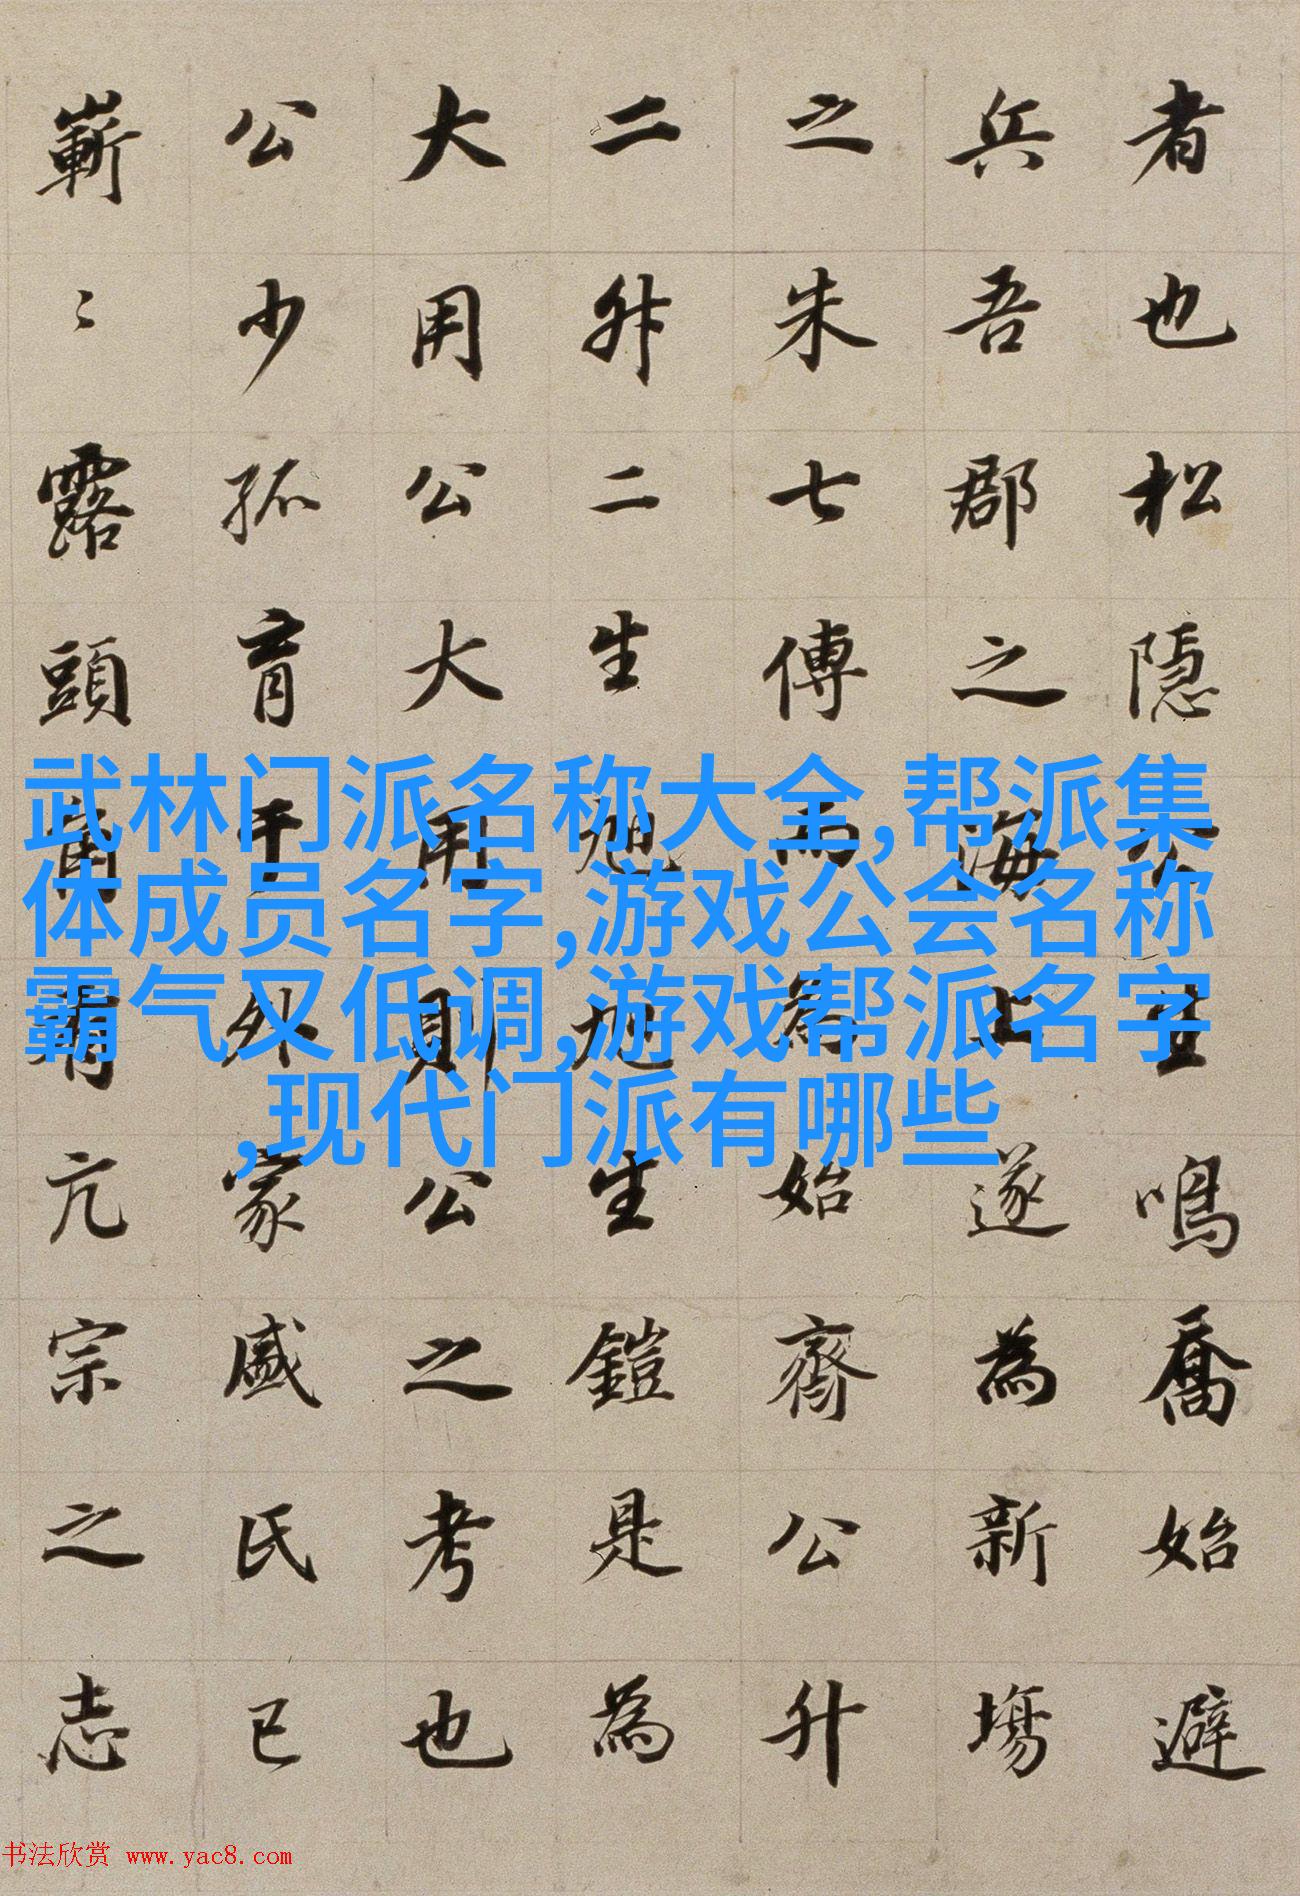 者也松隱鳴喬始避
兵吾郡之海上遂為新場
之朱七傅而為始齊公升
二升二生旭旭生鎧是為
大用公大用則公之考也
公少孤育于外家戚氏已
嶄〻露頭角有亢宗之志
武林门派名称大全,帮派集
体成员名字,游戏公会名称
霸气又低调,游戏帮派名字
,现代门派有哪些
书法欣赏 www.yac8.com